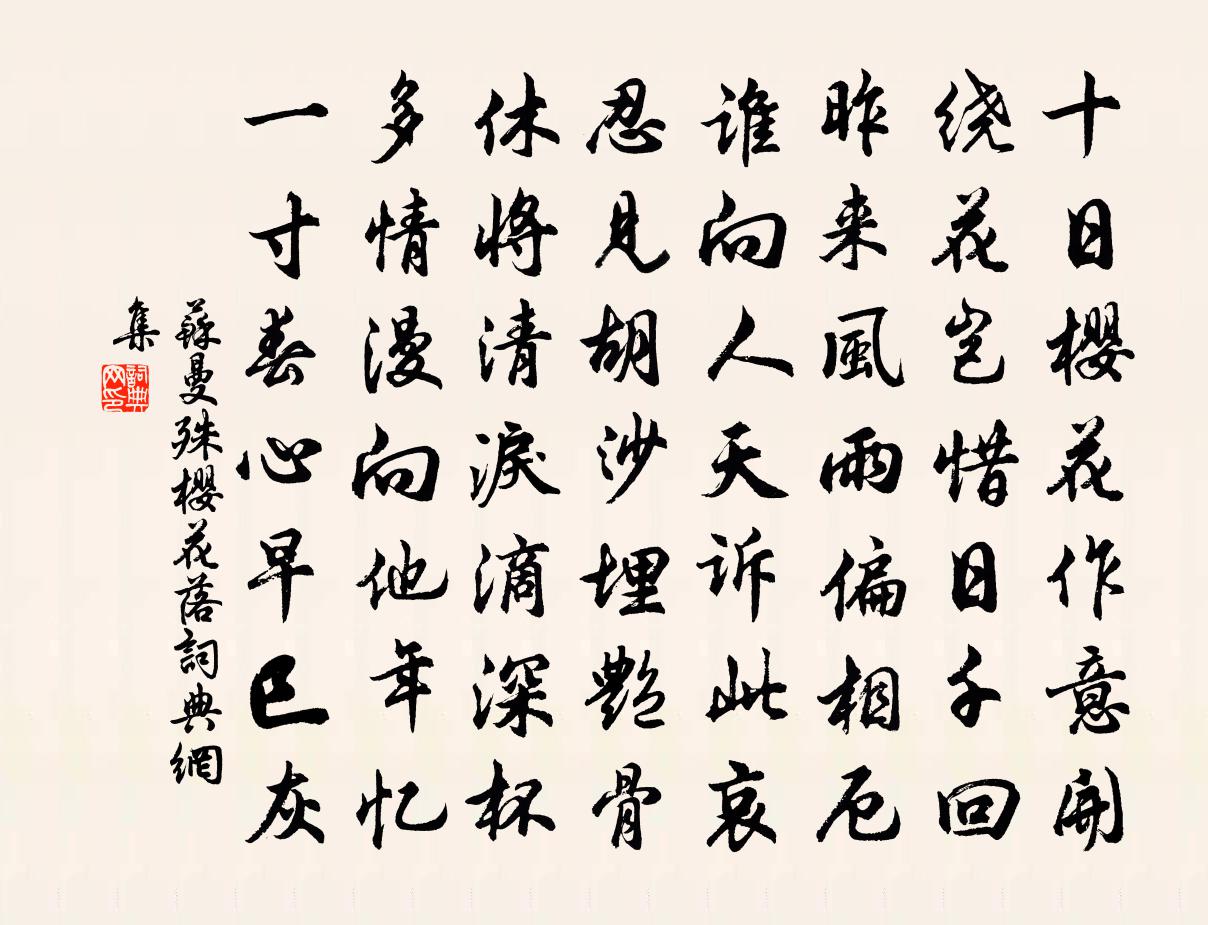 十日櫻花作意開
绕花岂惜日千回
昨来風雨偏相厄
谁向人天诉此哀
忍見胡沙埋艷骨
休將清淚滴深杯
多情漫向他年忆
一寸春心早已灰
蘇曼殊櫻花落詞典網
集
詞典网印